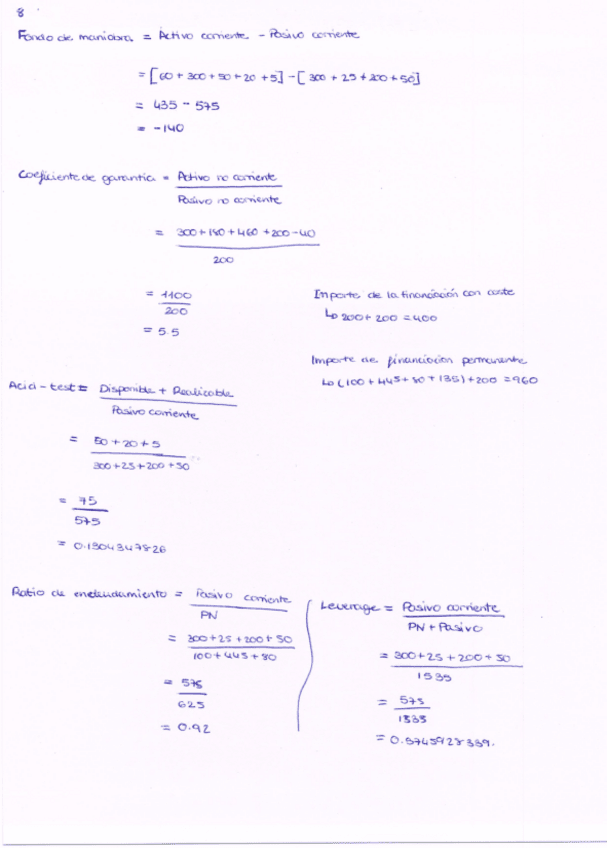 8
Fondo de maniobra = Activo corriente - Pasivo corriente
= [60 + 300 + 50 + 20 + 5] - [300 + 25 + 200 + 50]
= 435 - 575
= -140
Coeficiente de garantia = Activo no corriente
Pasivo no corriente
= 300 + 180 + 460 + 200 - 40
200
= 1100
200
= 5.5
Importe de la financiación con coste
↳ 200 + 200 = 400
Importe de financiacion permanente
↳ (100 + 445 + 80 + 135) + 200 = 960
Acid-test = Disponible + Realizable
Pasivo corriente
= 50 + 20 + 5
300 + 25 + 200 + 50
= 75
575
= 0.1304347826
Ratio de endeudamiento = Pasivo corriente
PN
= 300 + 25 + 200 + 50
100 + 445 + 80
= 575
625
= 0.92
Leverage = Pasivo corriente
PN + Pasivo
= 300 + 25 + 200 + 50
1535
= 575
1535